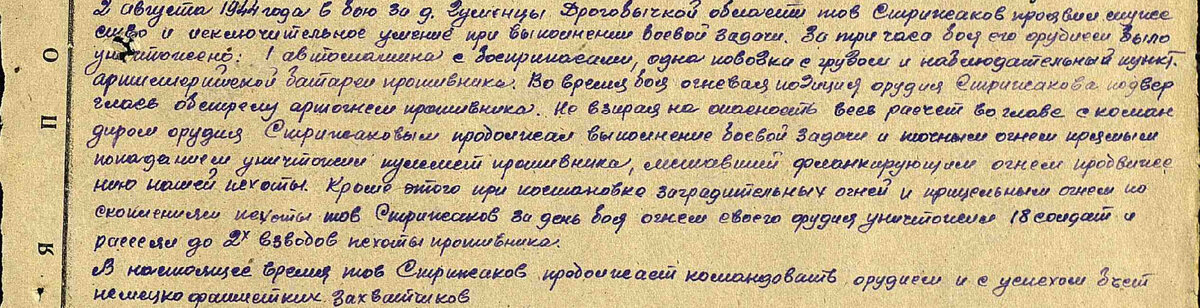 2 августа 1944 года в бою за д. Гуменцы Дрогобычкой области тов Стрижаков проявил муже
ство и исключительное умение при выполнении боевой задачи. За три часа боя его орудием было
уничтожено: 1 автомашина с боеприпасами, одна повозка с грузом и наблюдательный пункт
артиллерийской батареи противника. Во время боя огневая позиция орудия Стрижакова подвер
глась обстрелу артогнем противника. Не взирая на опасность весь расчет во главе с коман
диром орудия Стрижаковым продолжал выполнение боевой задачи и точным огнем прямым
попаданием уничтожил пулемет противника, мешавший фланкирующим огнем продвиже
нию нашей пехоты. Кроме этого при постановке заградительных огней и прицельным огнем по
скоплениям пехоты тов Стрижаков за день боя огнем своего орудия уничтожил 18 солдат и
рассеял до 2х взводов пехоты противника.
В настоящее время тов Стрижаков продолжает командовать орудием и с успехом бьет
немецко фашистких захватчиков
О
П
Я